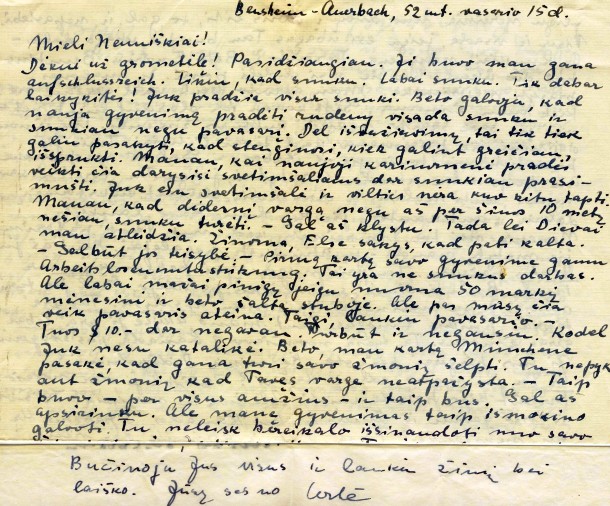 Bensheim-Auerbach, 52 mt. vasario 15 d.
Mieli Nemiškiai!
Dėkui už gromatėlę! Pasidžiaugiau. Ji buvo man gana
aufschlussreich. Tikiu, kad sunku. Labai sunku. Tik dabar
laikykitės! Juk pradžia visur sunki. Beto galvoju, kad
naują gyvenimą pradėti rudenį visada sunku ir
sunkiau negu pavasarį. Dėl išvažiavimų, tai tik tiek
galiu pasakyti, kad stengiuosi, kiek galint greičiau,
išsprukti. Manau, kai naujoji kariuomenė pradės
veikti čia darysis svetimšaliams dar sunkiau prasi-
mušti. Juk esu svetimšalė ir vilties nėra kuo kitu tapti.
Manau, kad didesnį vargą negu aš per šiuos 10 metų
nešiau, sunku turėti. - Gal aš klystu. Tada lei Dievai
man atleidžia. Žinoma, Else sakys, kad pati kalta.
- Galbūt jos tiesybė. - Pirmą kartą savo gyvenime gaunu
Arbeitslosenunterstützung. Tai yra ne sunkus darbas.
Ale labai mažai pinigų jeigu nuoma 50 markių
mėnesini ir beto šalta stuboje. Ale pas mus čia
veik pavasaris ateina. Taigi, laukiu pavasario. -
Tuos $ 10.- dar negavau, Turbūt ir negausiu. Kodėl
Juk nesu katalikė. Beto, man kartą Münchene
pasakė, kad gana turi savo žmonių šelpti. Tu nepyk
ant žmonių kad Tavęs varge neatpažįsta. - Taip
buvo - per visus amžius ir taip bus. Gal aš
apsirinku. Ale mane gyvenimas taip išmokino
galvoti. Tu neleisk išsinaudoti nuo savo
Bučiuoju Jus visus ir laukiu žinių bei
laiško. Jūsų sesuo